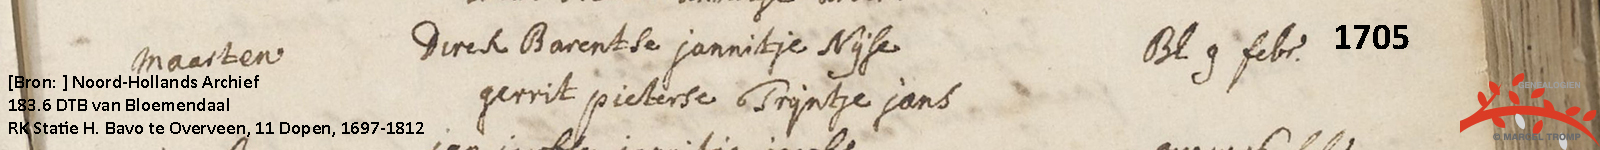 maarten Dirck Barentse jannitje Nijse Bl 9 febr. 1705
[Bron: ] Noord-Hollands Archief
gerrit pieterse Trijntje jans
183.6 DTB van Bloemendaal
RK Statie H. Bavo te Overveen, 11 Dopen, 1697-1812
GENEALOGIEN
© MARCEL TROMP